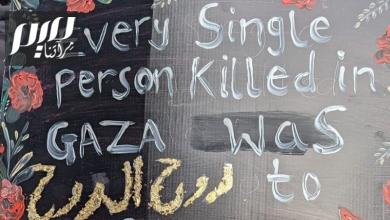 Every Single
person Killed in
GAZA Was
روح الروح to